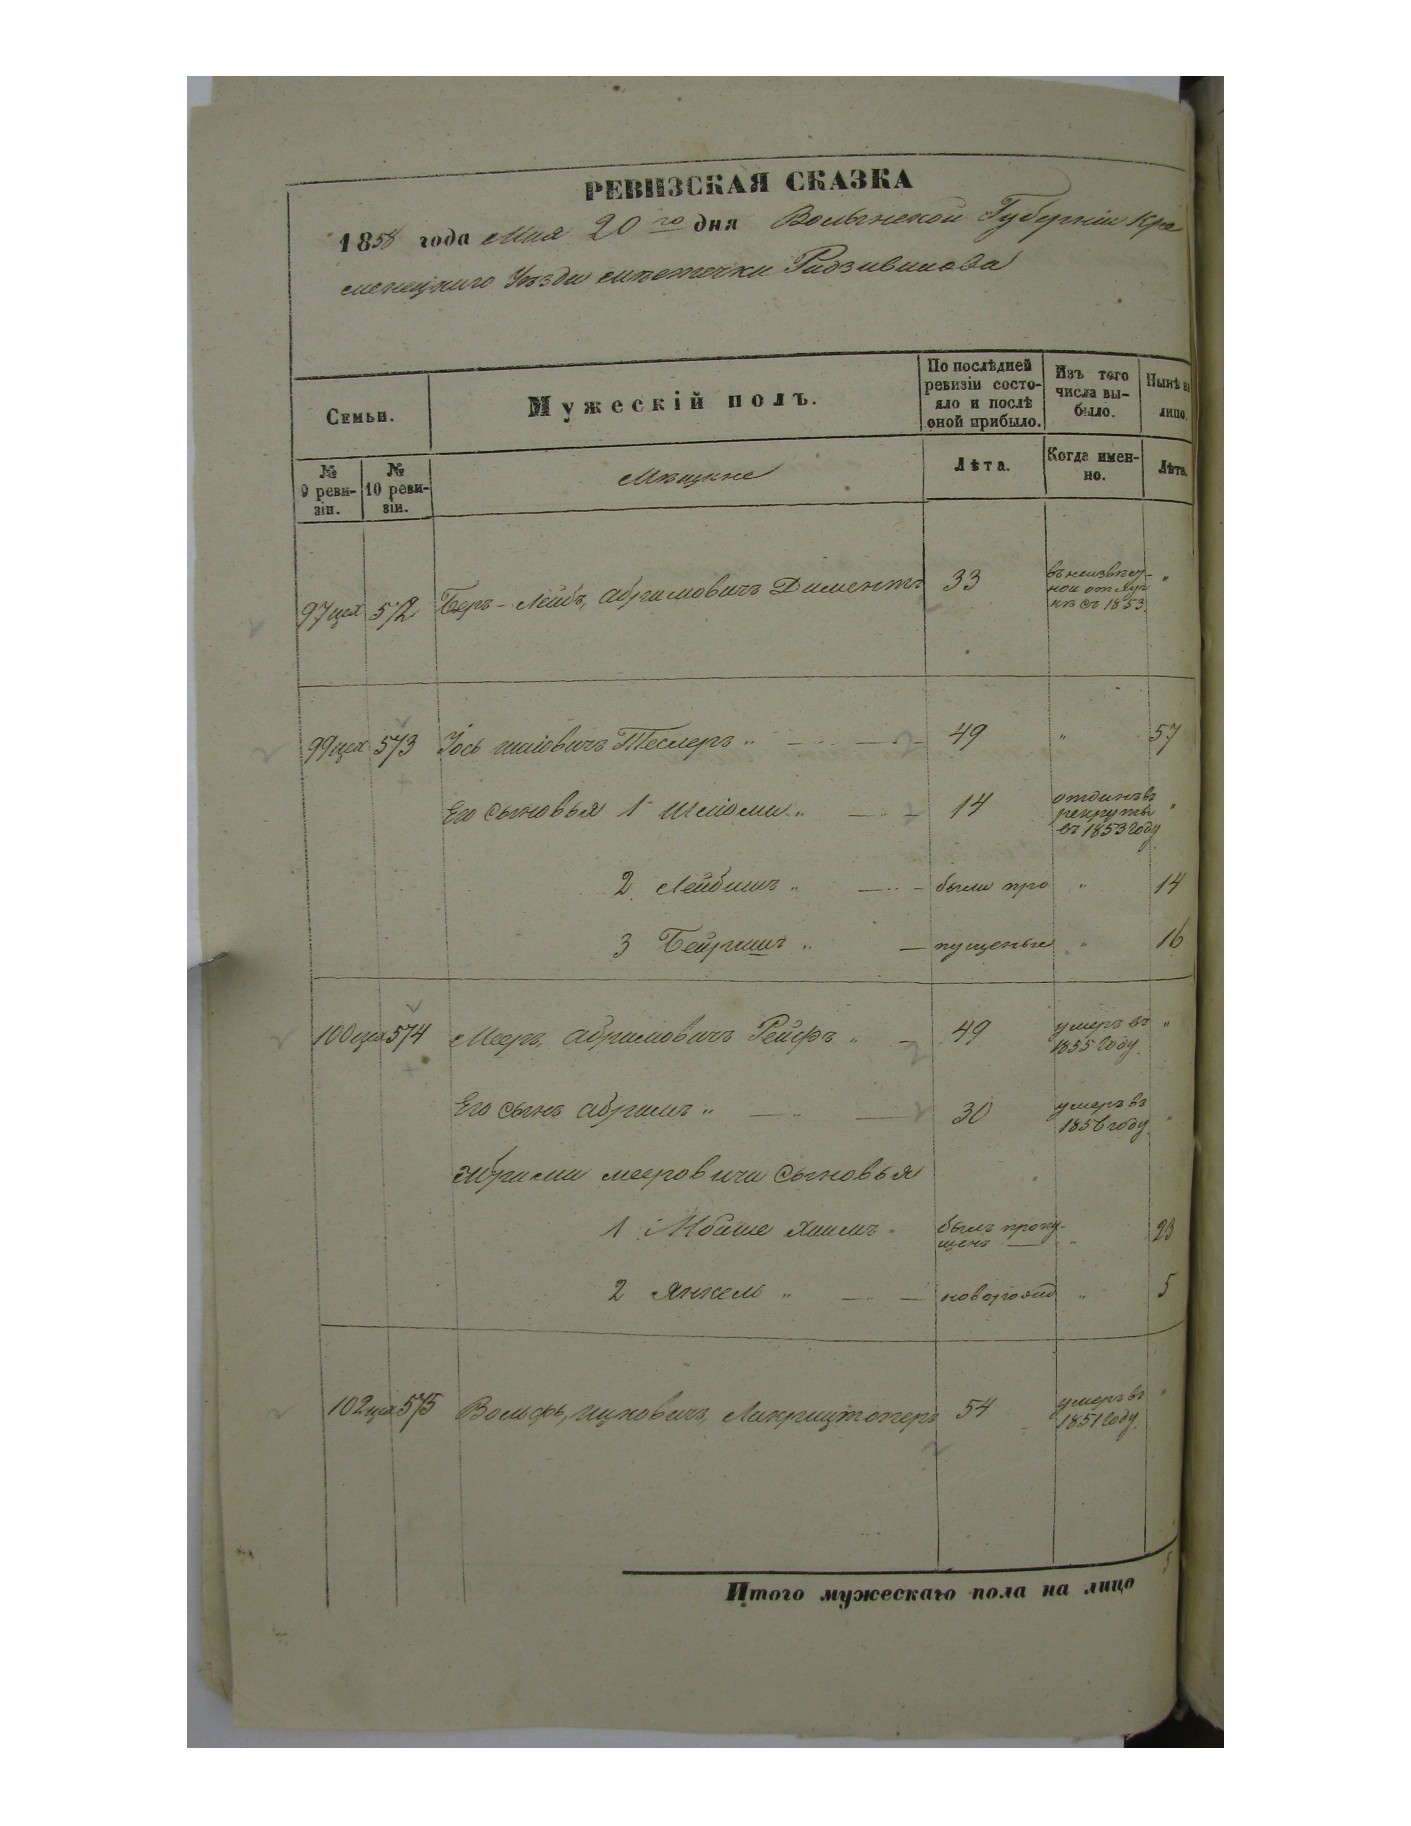 РЕВИЗСКАЯ СКАЗКА
1858 года Мая 20 го дня Волынской Губерніи Кре
менецкаго Уѣзда мѣстечка Радзивилова
Семьи.
Мужескій полъ.
По послѣдней ревизіи состояло и послѣ оной прибыло.
Изъ того числа выбыло.
Нынѣ на лицо.
№ 9 ревизіи.
№ 10 ревизіи.
Мѣщане
Лѣта.
Когда именно.
Лѣта.
97 цех 572 Беръ-Лейбъ, Абрамовичъ Диментъ 33 въ неизвѣстной отлучкѣ съ 1853 "
99 цех 573 Іось Шліовичъ Теслеръ " 49 " 57
Его сыновья 1 Шліома " 14 отданъ въ рекруты въ 1853 году "
2 Лейбишъ " были про " 14
3 Бейришъ " пущены " 16
100 цех 574 Мееръ, Абрамовичъ Рейфъ " 49 умеръ въ 1855 году "
Его сынъ Абрамъ " 30 умеръ въ 1856 году "
Абрама Мееровича сыновья
1 Мойше Хаимъ " былъ пропущенъ " 23
2 Янкель " новорожд " 5
102 цех 575 Вольфъ, Ицковичъ, Лакрицтопперъ 54 умеръ въ 1851 году "
Итого мужескаго пола на лицо 5